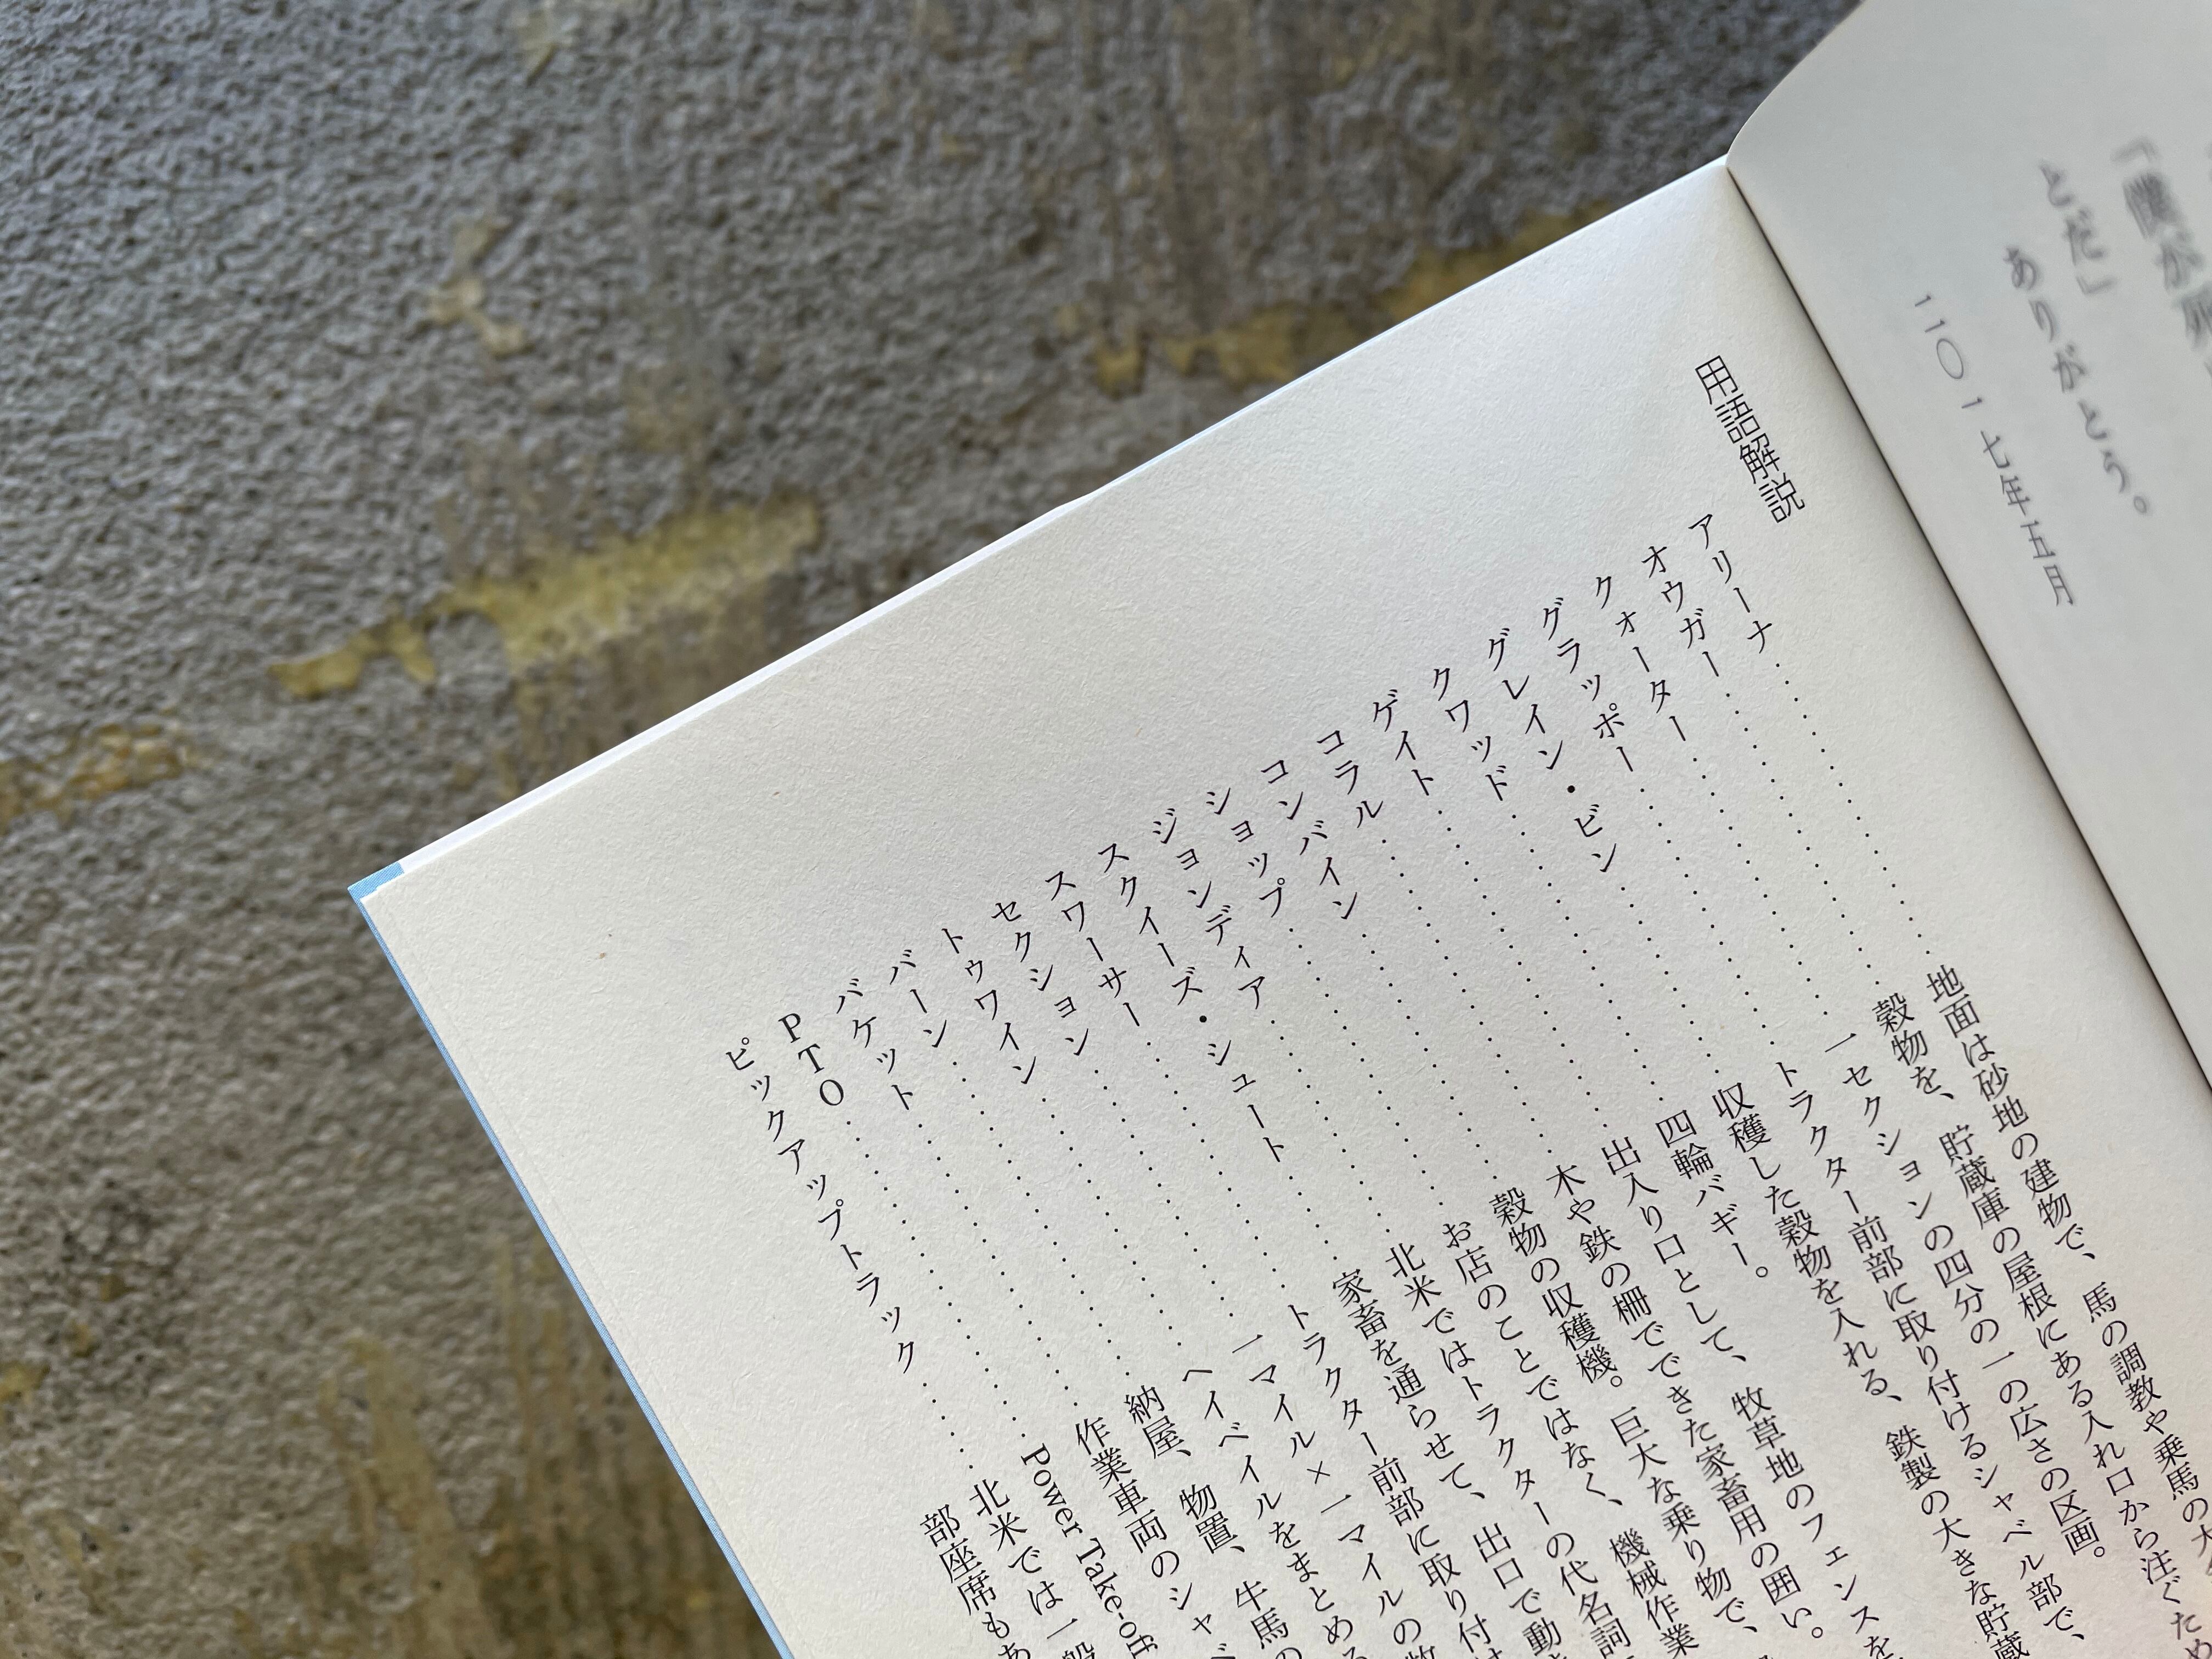 「僕が
とだ」
ありがとう。
二〇一七年五月
用語解説
アリーナ…………地面は砂地の建物で、馬の調教や乗馬の
オウガー…………穀物を、貯蔵庫の屋根にある入れ口から注ぐため
クォーター…………一セクションの四分の一の広さの区画。
グラッポー…………トラクター前部に取り付けるシャベル部で、
グレイン・ビン…………収穫した穀物を入れる、鉄製の大きな貯蔵
クワッド…………四輪バギー。
ゲイト…………出入り口として、牧草地のフェンスを
コラル…………木や鉄の柵でできた家畜用の囲い。
コンバイン…………穀物の収穫機。巨大な乗り物で、
ショップ…………お店のことではなく、機械作業
ジョンディア…………北米ではトラクターの代名詞
スクイーズ・シュート…………家畜を通らせて、出口で動
スワーサー…………トラクター前部に取り付け
セクション…………一マイル×一マイルの
トゥワイン…………ヘイベイルをまとめる
バーン…………納屋、物置、牛馬の
バケット…………作業車両のシャベ
PTO…………Power Take-off
ピックアップトラック…………北米では一般
部座席もあ